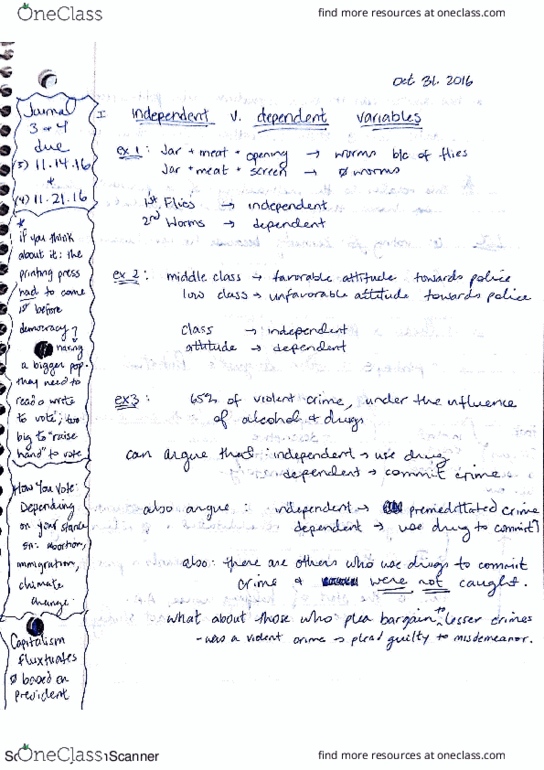 OneClass
find more resources at oneclass.com
Oct 31. 2016
Journal
3 & 4
due
(3) 11.14.16
*
(4) 11.21.16
*
if you think
about it: the
printing press
had to come
1st before
democracy?
having
a bigger pop.
they need to
read & write
to vote; too
big to "raise
hand" to vote
How You Vote:
Depending
on your stance
on: abortion,
immigration,
climate
change.
Capitalism
fluxtuates
Ø based on
president
I independent v. dependent variables
ex 1: Jar + meat + opening → worms b/c of flies
Jar + meat + screen → Ø worms
1st Flies → independent
2nd Worms → dependent
ex 2: middle class → favorable attitude towards police
low class → unfavorable attitude towards police
class → independent
attitude → dependent
ex 3: 65% of violent crime, under the influence
of alcohol & drugs
can argue that: independent → use drug
dependent → commit crime
also argue: independent → premeditated crime
dependent → use drug to commit
also: there are others who use drugs to commit
crime & were not caught.
what about those who plea bargain to lesser crimes
- was a violent crime → plead guilty to misdemeanor.
OneClass
Scanner
find more resources at oneclass.com